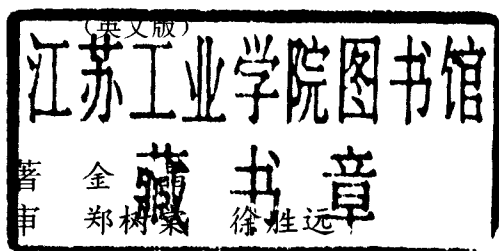 (英文版)
江苏工业学院图书馆
藏书章
著 金
审 郑树 徐胜远